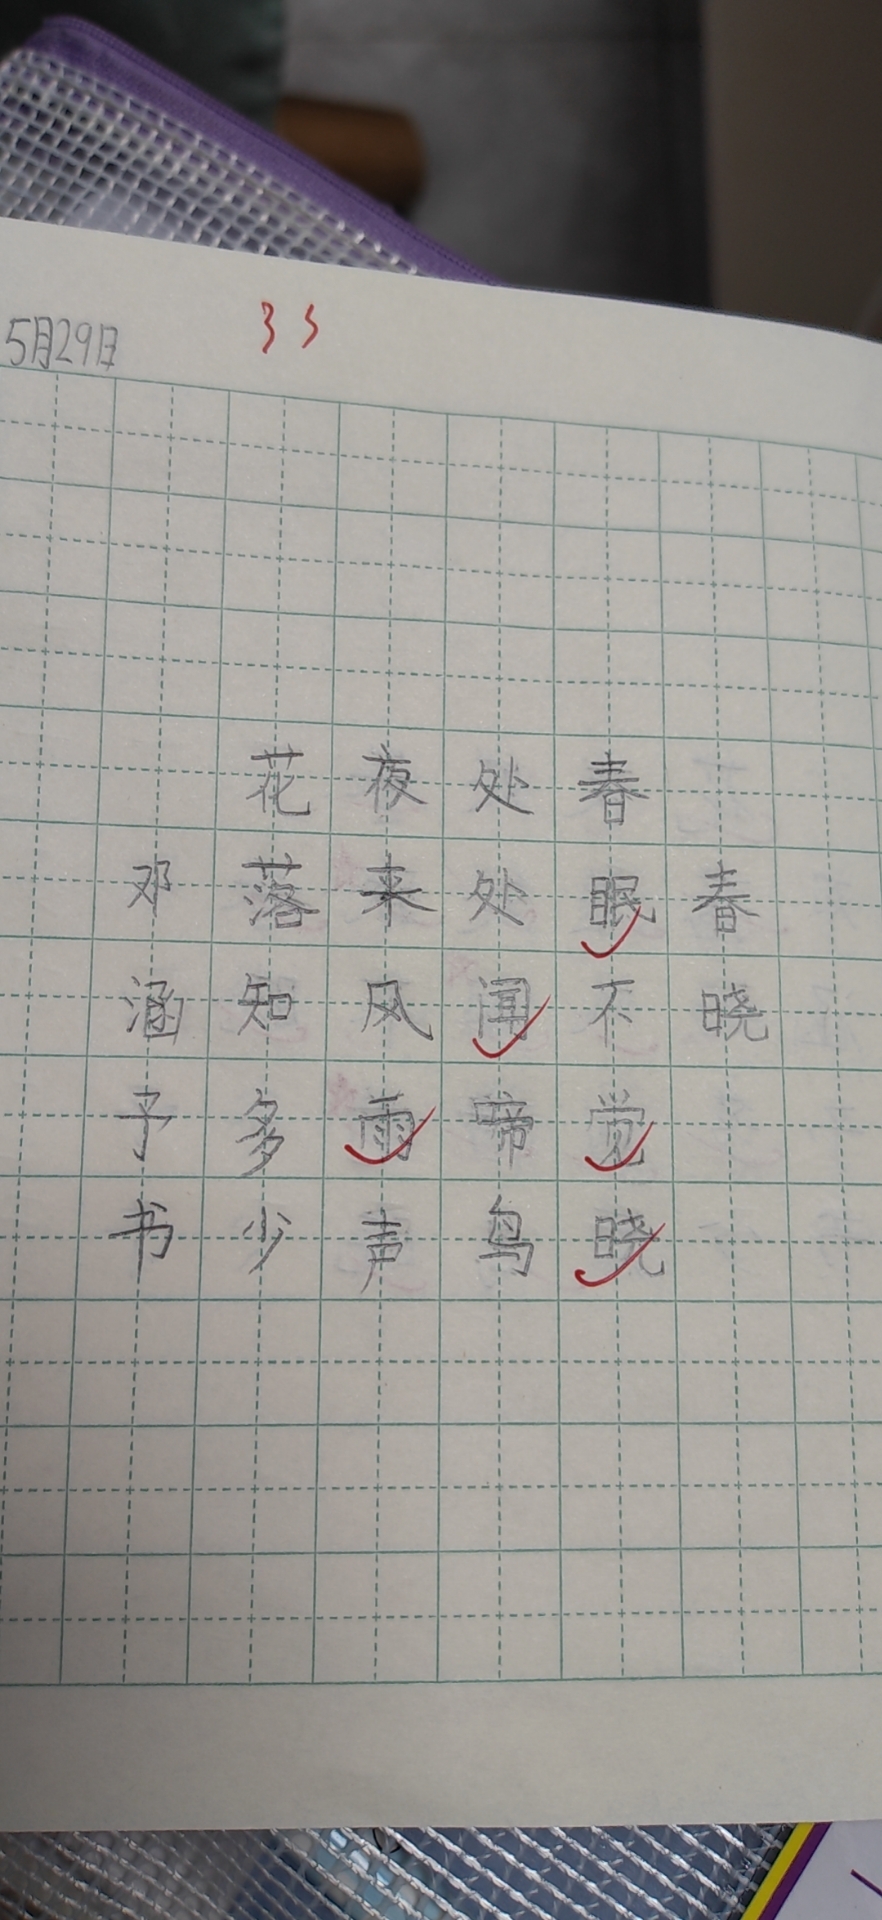 5月29日
35
春晓
春眠不觉晓
处处闻啼鸟
夜来风雨声
花落知多少
邓涵予书